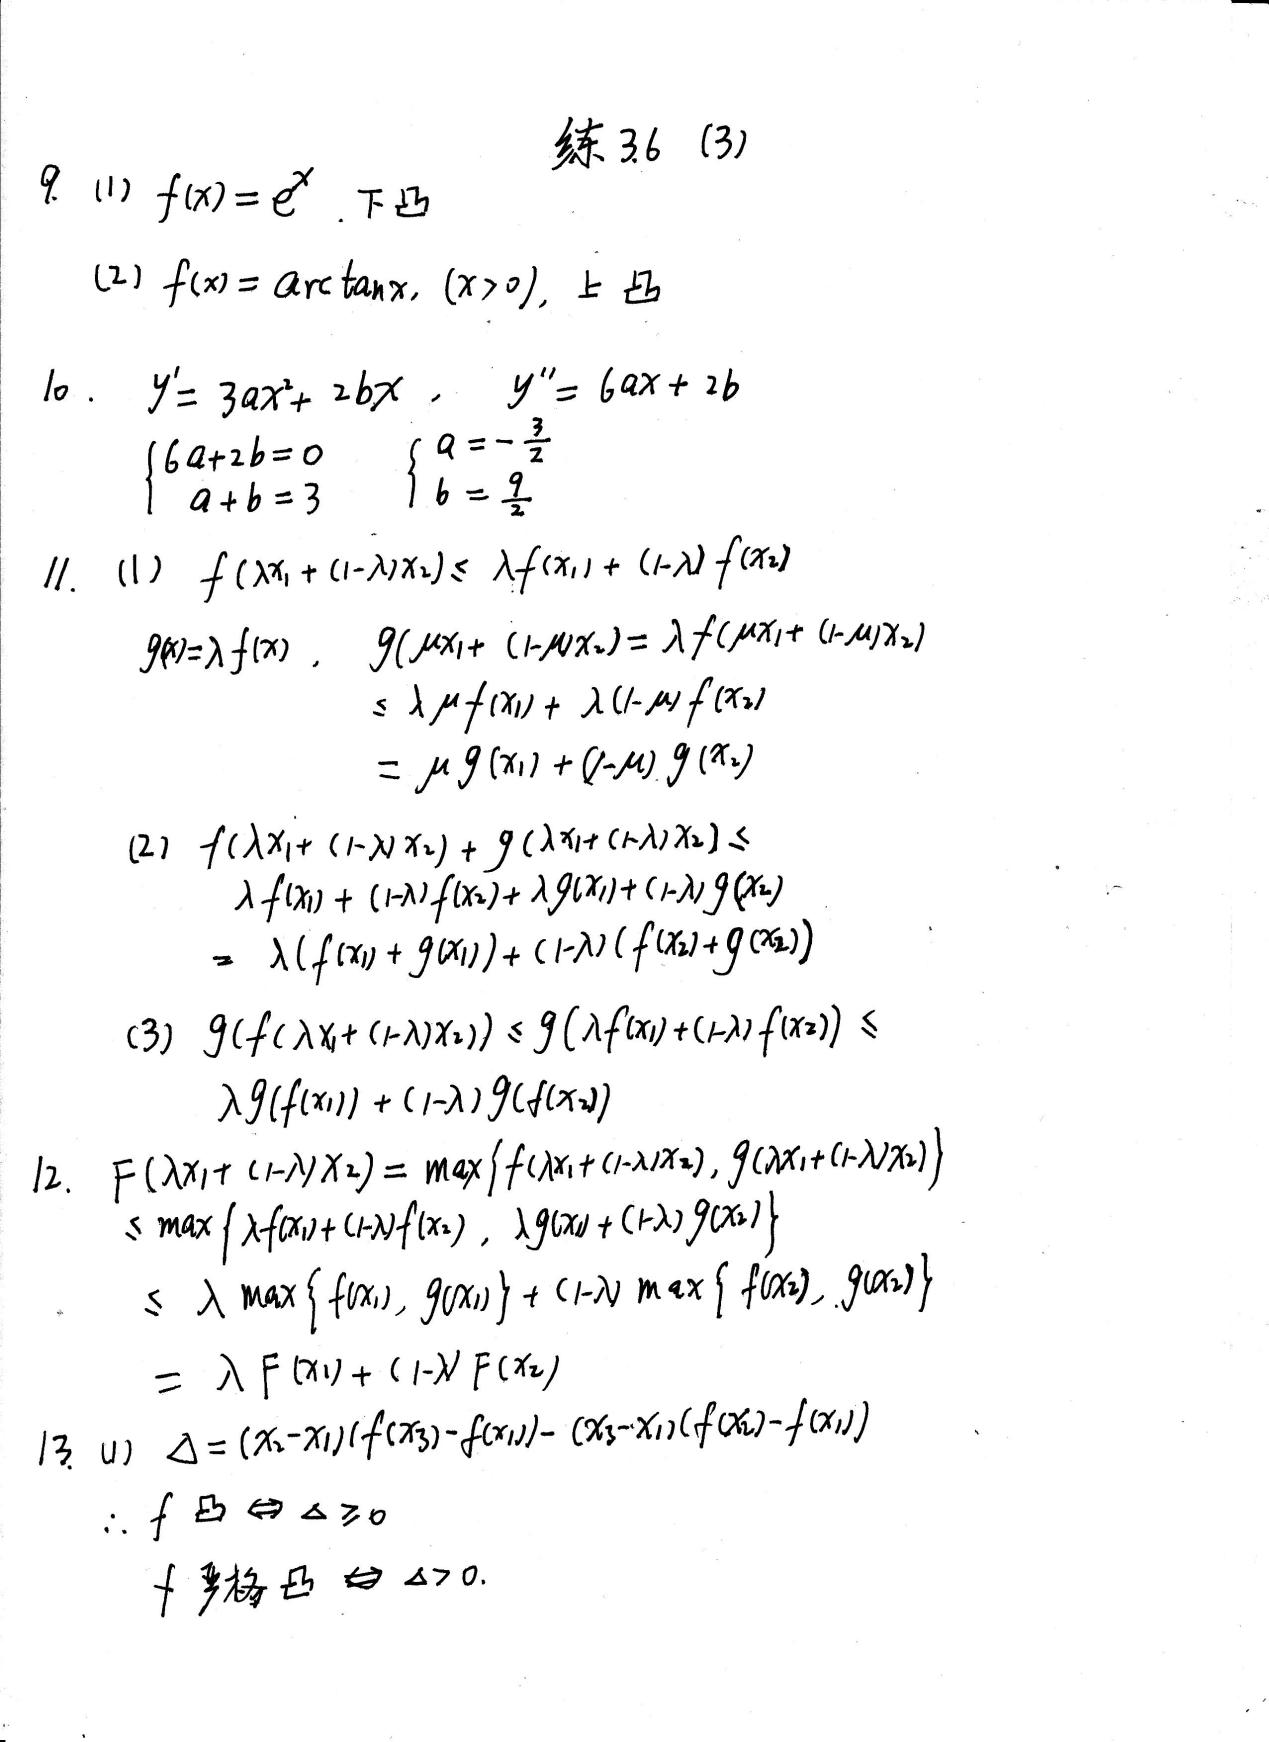 练 3.6 (3)
9. (1) f(x) = e^x . 下凸
(2) f(x) = arctanx, (x>0), 上凸
10. y' = 3ax² + 2bx , y'' = 6ax + 2b
{6a+2b=0 {a = -3/2
a+b=3 b = 9/2
11. (1) f(λx₁ + (1-λ)x₂) ≤ λf(x₁) + (1-λ) f(x₂)
g(x)=λf(x) , g(μx₁ + (1-μ)x₂) = λf(μx₁ + (1-μ)x₂)
≤ λμf(x₁) + λ(1-μ) f(x₂)
= μg(x₁) + (1-μ) g(x₂)
(2) f(λx₁ + (1-λ)x₂) + g(λx₁ + (1-λ)x₂) ≤
λf(x₁) + (1-λ)f(x₂) + λg(x₁) + (1-λ)g(x₂)
= λ(f(x₁) + g(x₁)) + (1-λ)(f(x₂) + g(x₂))
(3) g(f(λx₁ + (1-λ)x₂)) ≤ g(λf(x₁) + (1-λ)f(x₂)) ≤
λg(f(x₁)) + (1-λ)g(f(x₂))
12. F(λx₁ + (1-λ)x₂) = max{f(λx₁ + (1-λ)x₂), g(λx₁ + (1-λ)x₂)}
≤ max{λf(x₁) + (1-λ)f(x₂), λg(x₁) + (1-λ)g(x₂)}
≤ λ max{f(x₁), g(x₁)} + (1-λ) max{f(x₂), g(x₂)}
= λF(x₁) + (1-λ)F(x₂)
13. (1) Δ = (x₂-x₁)(f(x₃)-f(x₁)) - (x₃-x₁)(f(x₂)-f(x₁))
∴ f 凸 ⇔ Δ≥0
f 严格凸 ⇔ Δ>0.